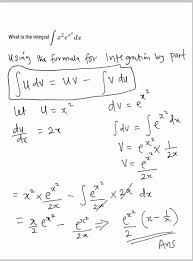 What is the integral ∫ x² e^(x²) dx
Using the formula for Integration by part
∫ u dv = uv − ∫ v du
let u = x²    dv = e^(x²)
du/dx = 2x    ∫ dv = ∫ e^(x²) dx
v = e^(x²) × 1/2x
v = e^(x²)/2x
= x² × e^(x²)/2x − ∫ e^(x²)/2x × 2x dx
= x/2 e^(x²) − e^(x²)/2x ⇒ e^(x²)/2 (x − 1/x)
Ans